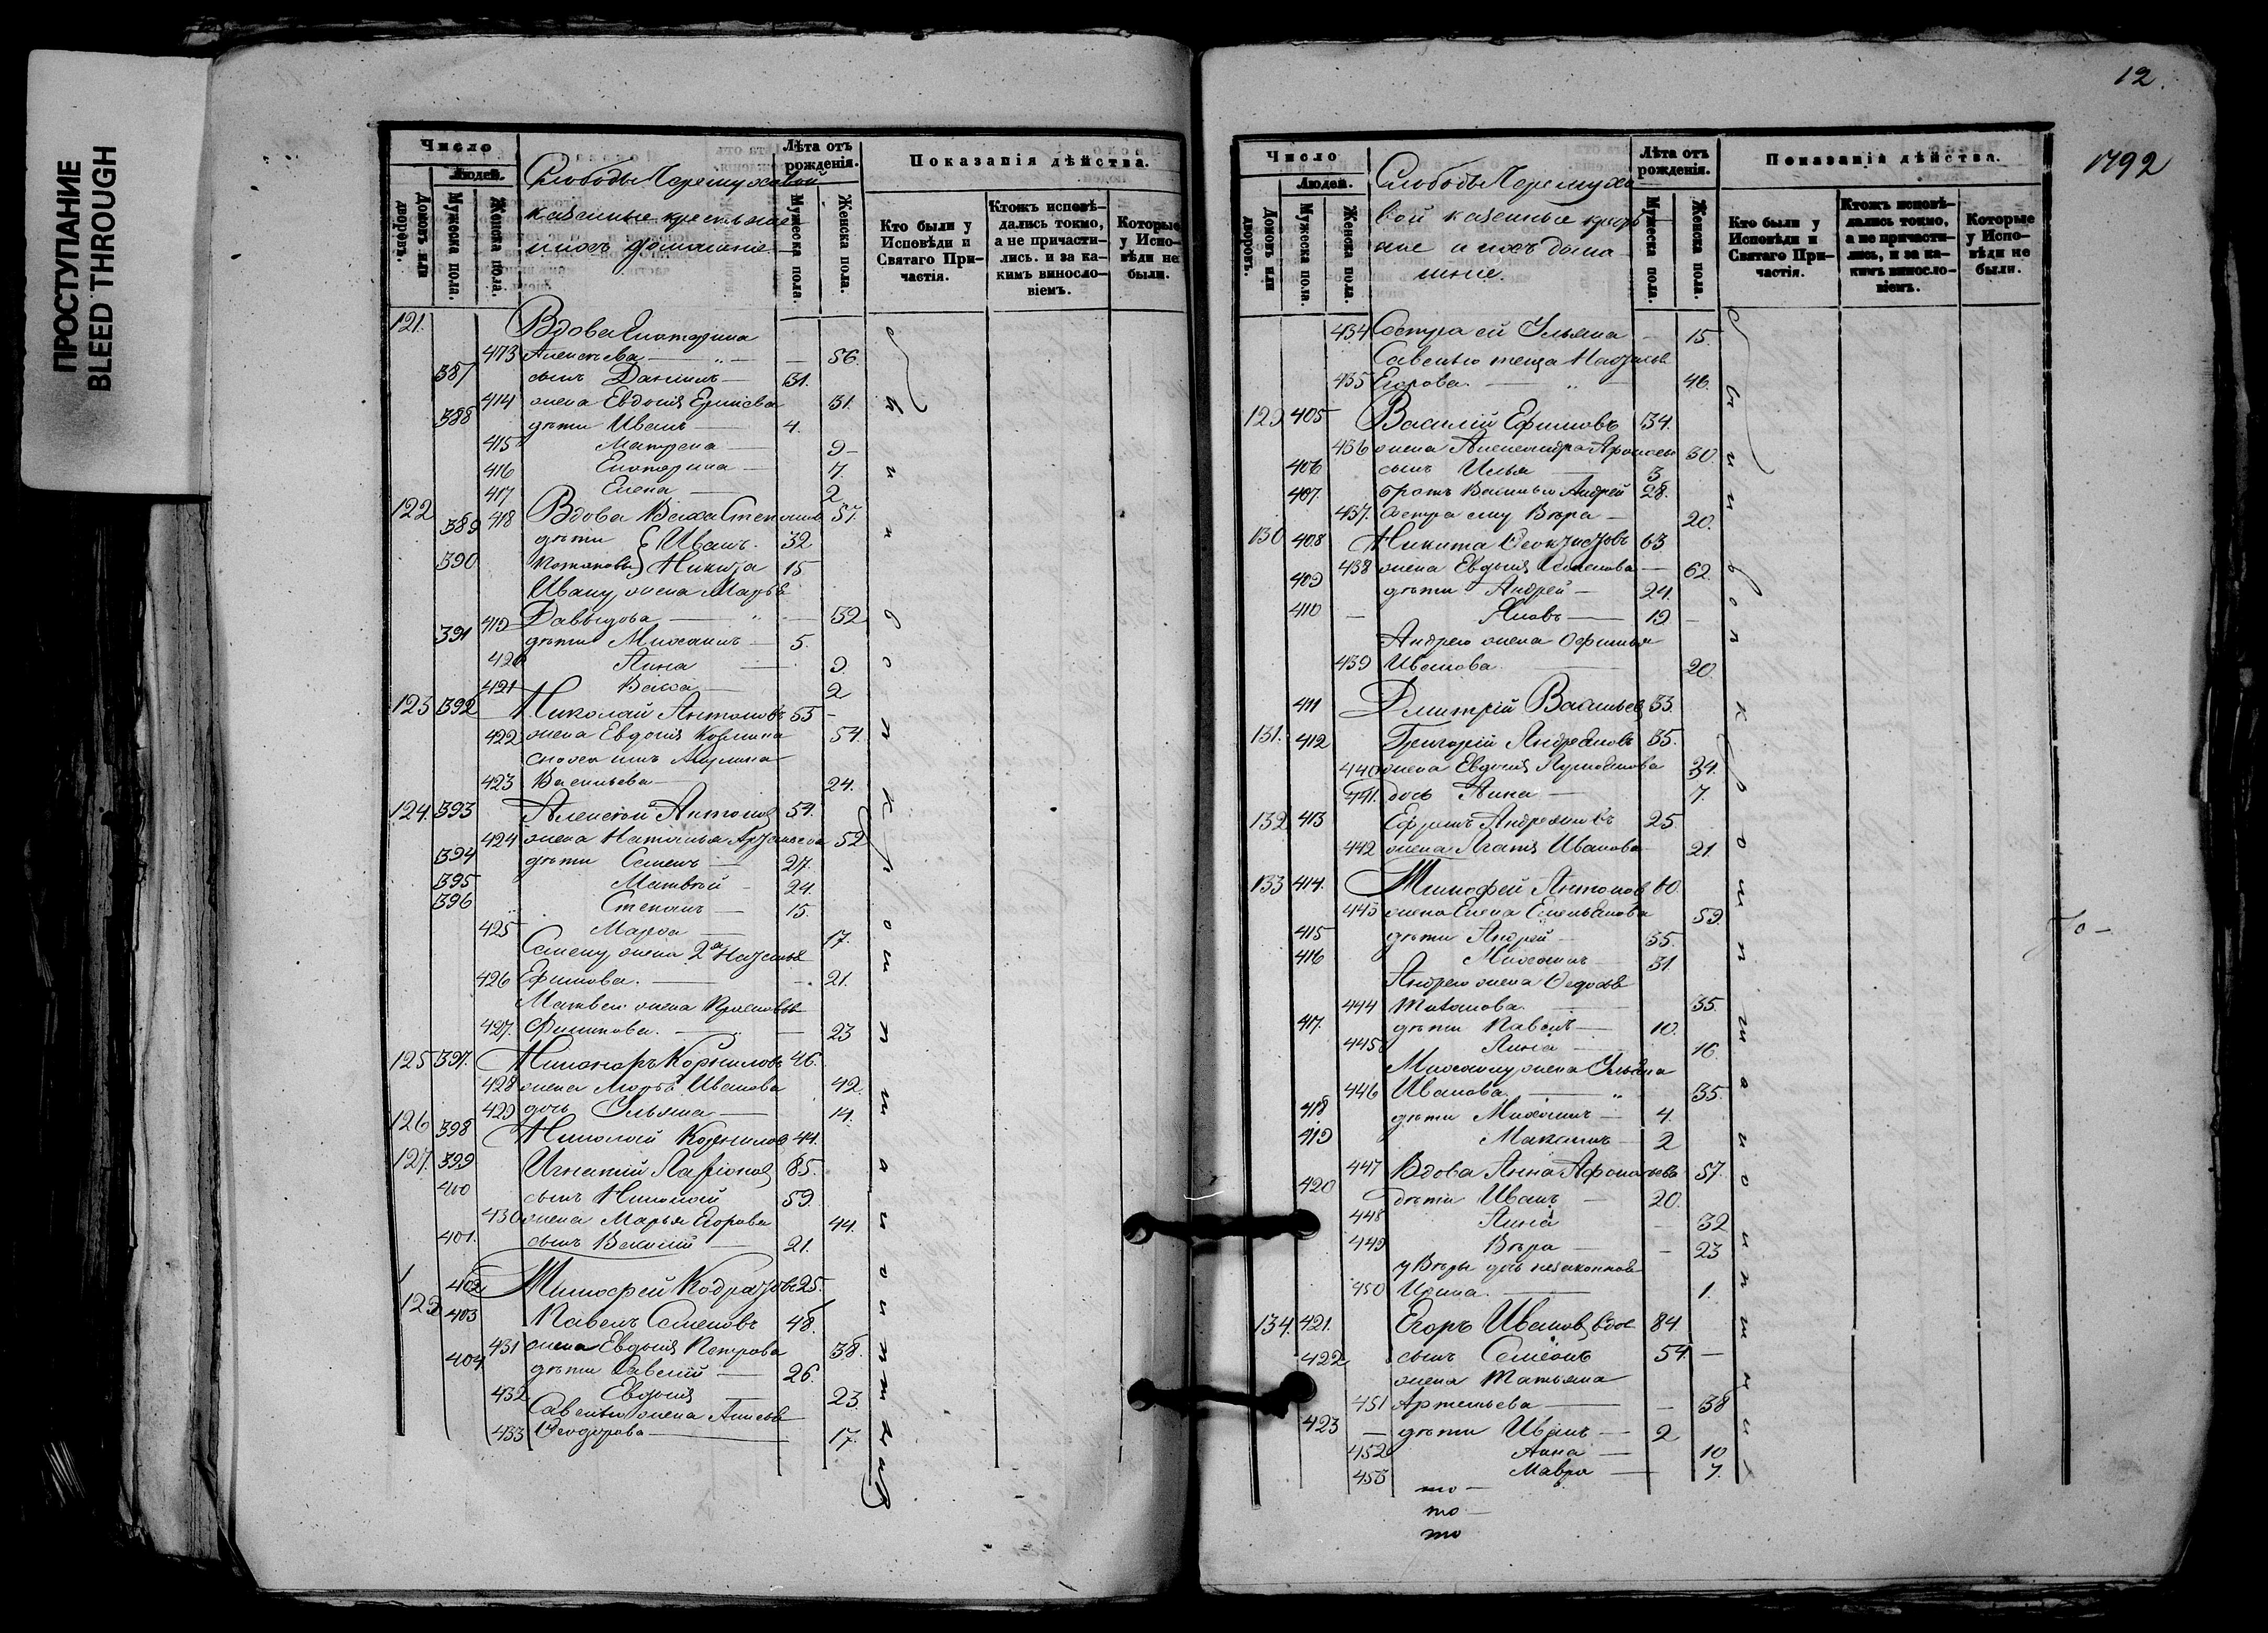 ПРОСТУПАНИЕ
BLEED THROUGH
Число
Людей.
Домовъ или дворовъ.
Мужеска пола.
Женска пола.
Слободы Черемуховой
казенные крестьяне
и ихъ домашніе
Лѣта отъ рожденія.
Мужеска пола.
Женска пола.
Показанія дѣйства.
Кто были у Исповѣди и Святаго Причастія.
Ктожъ исповѣдались токмо, а не причастились. и за какимъ винословіемъ.
Которые у Исповѣди не были.
121. Вдова Екатерина
413 Алексѣева — „ — — 56
387 сынъ Даніилъ — 31.
414 жена Евдокія 31.
388 дѣти Иванъ — 4.
415 Матрена — 9 —
416 Екатерина — 7.
417 Елена — 2
122 418 Вдова Васса Степанова 57.
389 дѣти Иванъ. 32
390 Никита 15
Ивану жена Марья
419 Давыдова — „ — 32
391 дѣти Михаилъ — 5.
420 Анна — 9.
421 Васса — 2
123 392 Николай Антоновъ 55 —
422 жена Евдокія Козмина 54.
Акулина
423 Васильева — 24.
124. 393 Алексѣй Антонов 54.
424 жена Наталья 52
394 дѣти Семенъ — 27.
395 Матвѣй — 24.
396 Степанъ — 15.
425 Марѳа — 17.
Семену жена 2я Наталья
426 Ефимова. — 21.
Матвею жена
427. Филипова. — 23
125 397. Никаноръ Корниловъ 46.
428 жена Марья Иванова 42.
429 дочь Ульяна — 14.
126 398 Николай Корнилов 44.
127. 399 Игнатій Ларіонов 85.
400 сынъ Николай 59.
430 жена Марья Егорова 44.
401. сынъ Василій — 21.
402 Тимофей 25.
403 Павелъ Семеновъ 48.
431 жена Евдокія Петрова 38.
404 дѣти Савелій — 26.
432 Евдокія — 23.
Савелью жена Анисья
433 Ѳеодорова — 17.
12.
1792
Число
Людей.
Домовъ или дворовъ.
Мужеска пола.
Женска пола.
Слободы Черемухо
вой казенные крестья
не и ихъ дома
шніе.
Лѣта отъ рожденія.
Мужеска пола.
Женска пола.
Показанія дѣйства.
Кто были у Исповѣди и Святаго Причастія.
Ктожъ исповѣдались токмо, а не причастились, и за какимъ винословіемъ.
Которые у Исповѣди не были.
434 Сестра ей Ульяна — 15.
Савелью теща Наталья
435 Егорова. — „ — 46.
129 405 Василій Ефимовъ 34.
436 жена Александра 30
406 сынъ Илья — 3
407. братъ Василью Андрей 28.
437. Сестра ему Вѣра — 20.
130 408 Никита Ѳеоктистовъ 63
438 жена Евдокія Семенова — 62.
409 дѣти Андрей — 24.
410 — Яковъ — 19 —
Андрею жена Офимья
439 Иванова. — 20.
411 Дмитрій Васильев 33.
131. 412 Григорій Андреяновъ 35.
440 жена Евдокія 34.
441. дочь Анна — 7.
132 413 Ефремъ Андреяновъ 25.
442 жена Агаѳья Иванова 21.
133 414. Тимофей Антонов 60.
443 жена Елена Емельянова 59.
415 дѣти Андрей — 35.
416 Михаилъ — 31.
Андрею жена Ѳедосья
444 35.
417. дѣти Павелъ — 10.
445 Анна — 16.
Михаилу жена Ульяна
446 Иванова — „ — 35.
418 дѣти Михаилъ — 4.
419 Максимъ — 2
447 Вдова Анна Афонасьева 57.
420 дѣти Иванъ — 20.
448 Анна — 32
449 Вѣра — — 23
у Вѣры дочь незаконная
450 Ирина. — 1.
134. 421. Егоръ Иванов вдов 84.
422 сынъ Семенъ 54 —
жена Татьяна
451 Артемьева — — 38
423 — дѣти Иванъ — 2
452 Анна — 10
453 Мавра — 7.
то —
то —
то